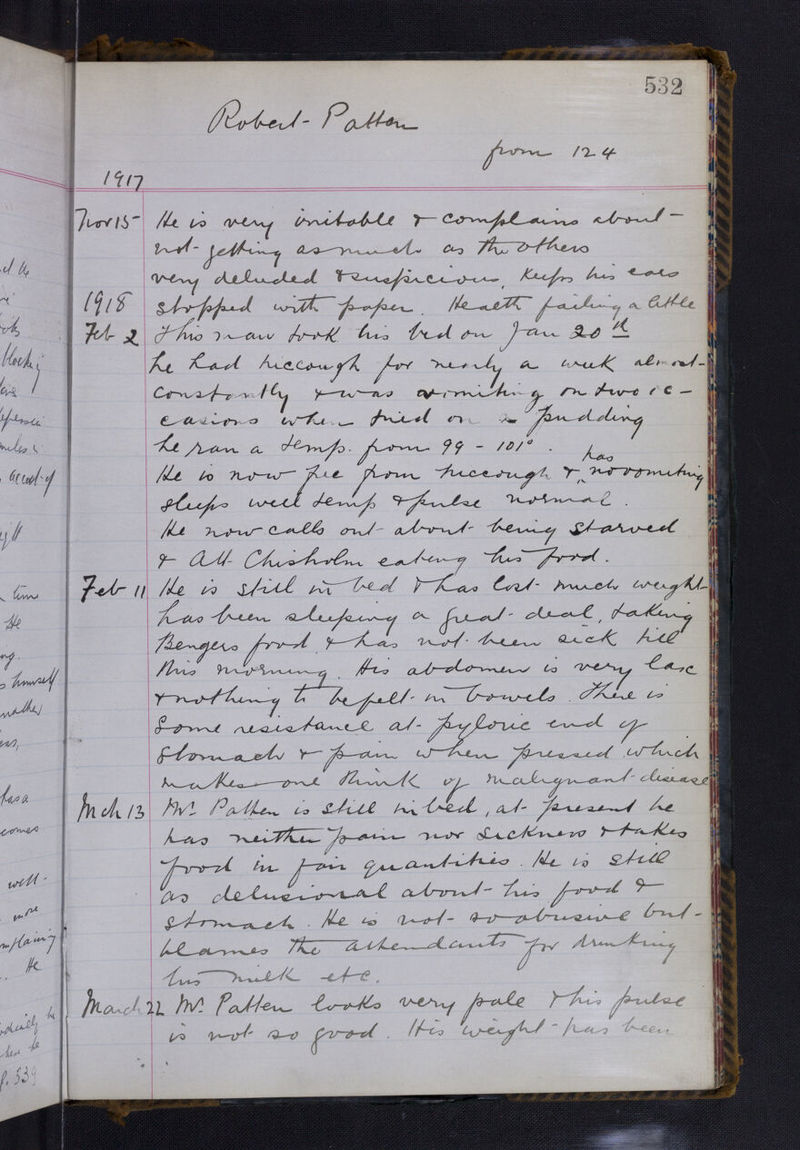 532
Robert Patten
from 124
1917
Nov 15 He is very irritable & complains about
not getting as much as the others
very deluded & suspicious, keeps his ears
1918 stopped with paper. Health failing a little
Feb 2 This man took his bed on Jan 20th
he had hiccough for nearly a week almost
constantly & was vomiting on two oc-
casions when tried on pudding
he ran a temp. from 99 - 101°.
He is now free from hiccough & has no vomiting
sleeps well temp & pulse normal.
He now calls out about being starved
& Att Chisholm eating his food.
Feb 11 He is still in bed & has lost much weight
has been sleeping a great deal, taking
Bengers food & has not been sick till
this morning. His abdomen is very lax
& nothing to be felt in bowels. There is
some resistance at pyloric end of
stomach & pain when pressed which
makes one think of malignant disease
Mch 13 Mr. Patten is still in bed, at present he
has neither pain nor sickness & takes
food in fair quantities. He is still
as delusional about his food &
stomach. He is not so abusive but
blames the attendants for drinking
his milk etc.
March 22 Mr. Patten looks very pale & his pulse
is not so good. His weight has been
blocking
himself
has a
comes
well
more
complaining
He
p. 539